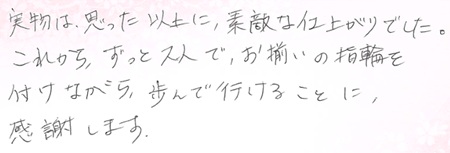 実物は、思った以上に、素敵な仕上がりでした。
これから、ずっと2人で、お揃いの指輪を
付けながら、歩んで行けることに、
感謝します。